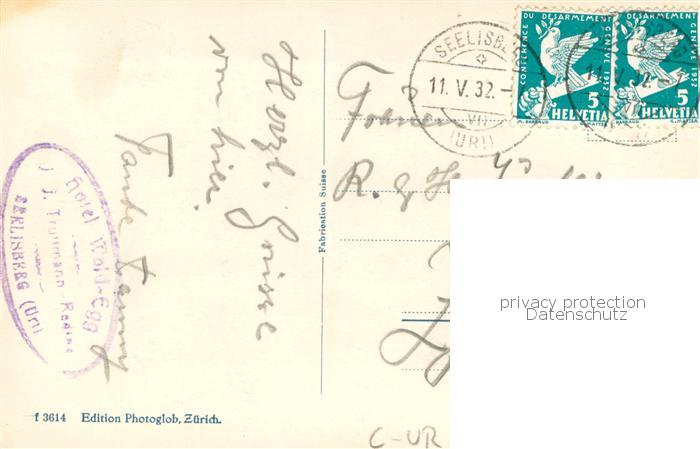 Herzl. Grüsse
von hier.
Tante Fanny
Hotel Wald-Egg
J. Truttmann-Reding
SEELISBERG (Uri)
Fabrication Suisse
f 3614 Edition Photoglob, Zürich.
SEELISBERG
11. V. 32.
VII
(URI)
CONFÉRENCE DU DÉSARMEMENT GENÈVE 1932
5
HELVETIA
CONFÉRENCE DU DÉSARMEMENT GENÈVE 1932
5
HELVETIA
11. V. 32.
R. g
C-UR
privacy protection
Datenschutz